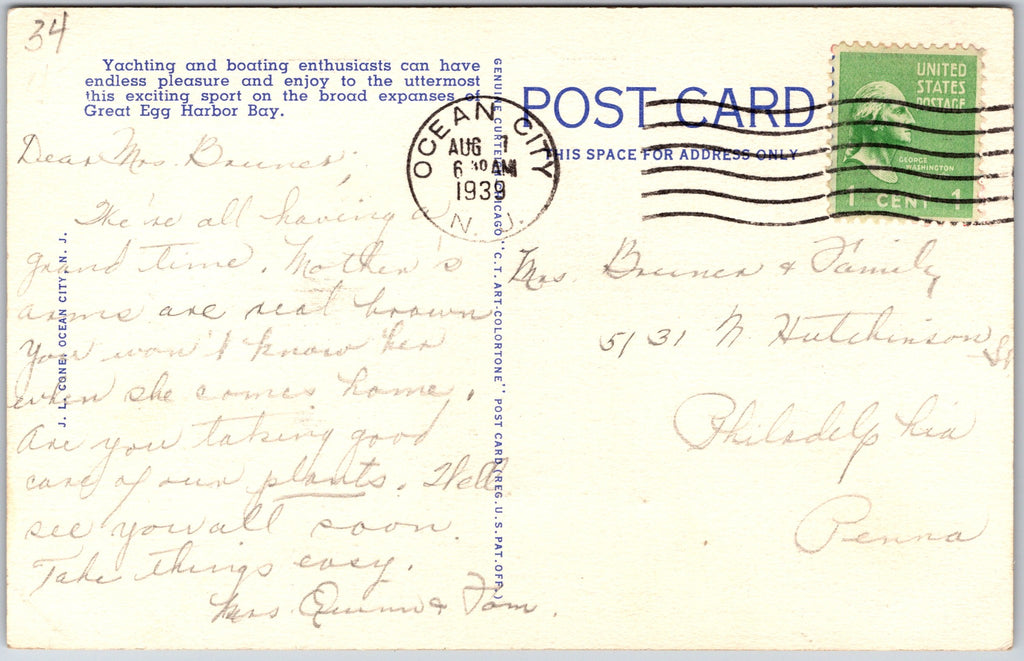 34
Yachting and boating enthusiasts can have
endless pleasure and enjoy to the uttermost
this exciting sport on the broad expanses of
Great Egg Harbor Bay.
Dear Mrs. Bruner;
We're all having a
grand time. Mother's
arms are real brown
You won't know her
when she comes home.
Are you taking good
care of our plants. Well
see you all soon.
Take things easy.
Mrs. Quinn & Fam.
J. L. CONE, OCEAN CITY, N. J.
GENUINE CURTEICH-CHICAGO "C.T. ART-COLORTONE" POST CARD (REG. U.S. PAT. OFF.)
POST CARD
THIS SPACE FOR ADDRESS ONLY
OCEAN CITY
AUG 7
6 30 AM
1939
N. J.
UNITED
STATES
POSTAGE
GEORGE
WASHINGTON
1 CENT 1
Mrs. Bruner & Family
5131 N. Hutchinson St
Philadelphia
Penna